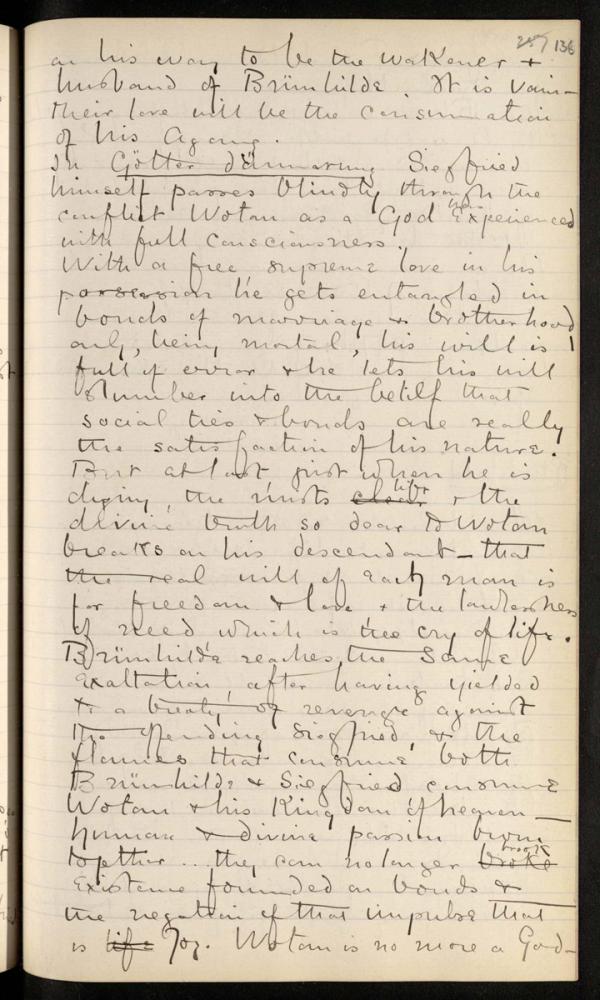 257 136
on his way to be the wakener +
husband of Brünhilde. It is vain –
their love will be the consummation
of his agony.
In Götter dämmarung Siegfried
himself passes blindly through the
conflict Wotan as a God has Experienced
with full consciousness.
With a free supreme love in his
possession he gets entangled in
bonds of marriage & brotherhood
only, being mortal, his will is
full of error & he lets his will
slumber into the belilf that
social ties & bonds are really
the satisfaction of his nature.
But at last just when he is
dying, the mists clear lift & the
divine truth so dear to Wotan
breaks on his descendant – that
the real will of each man is
for freedom & love & the lawlessness
of need which is the cry of life.
Brünhilde reaches the same
Exaltation, after having yielded
to a treaty of revenge against
the offending Siegfried, & the
flames that consume both
Brünhilde & Siegfried consume
Wotan & his Kingdom of heaven –
human & divine passion burn
together... they can no longer broke brook
Existence founded on bonds &
the negation of that impulse that
is life Joy. Wotan is no more a God –